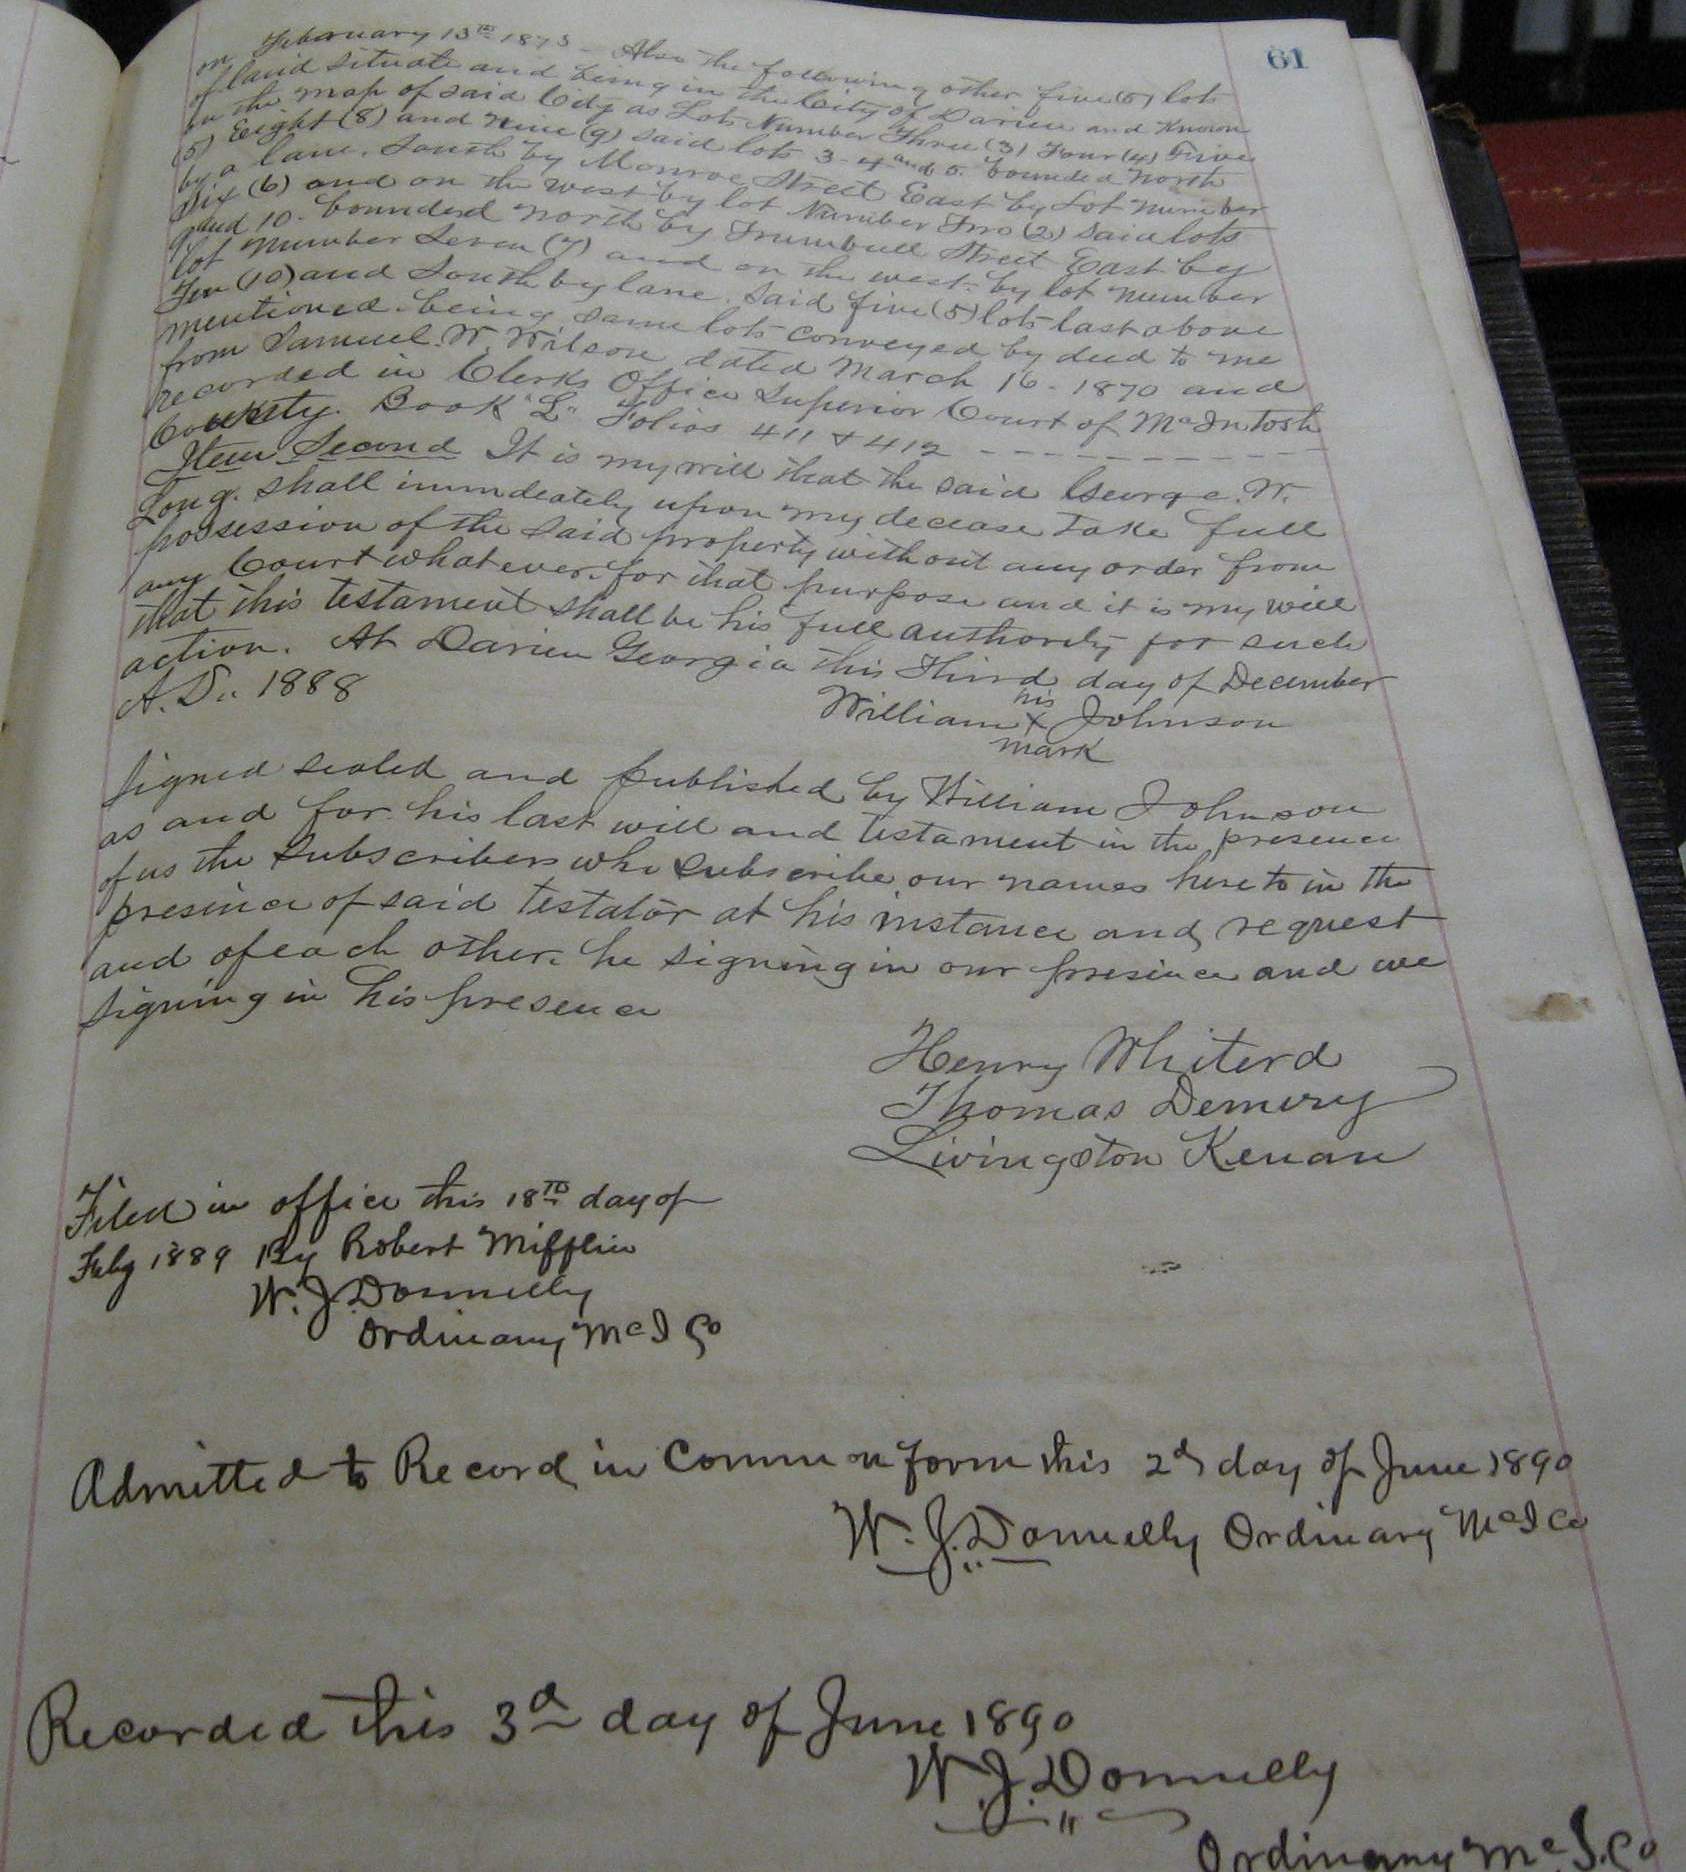 61
on February 13th 1873 - Also the following other five (5) lots
of land situate and being in the City of Darien and known
on the map of said City as Lots Number Three (3) Four (4) Five
(5) Eight (8) and Nine (9) said lots 3-4 and 5. bounded North
by a lane. South by Monroe Street East by Lot number
Six (6) and on the west by lot Number Two (2) said lots
9 and 10. bounded north by Trumbull Street East by
lot number Seven (7) and on the west by lot number
Ten (10) and South by lane. Said five (5) lots last above
mentioned being same lots conveyed by deed to me
from Samuel W. Wilson dated March 16 - 1870 and
recorded in Clerks Office Superior Court of McIntosh
County. Book "L" Folios 411 & 412
Item Second It is my will that the said George. W.
Long. shall immdeately upon my decease take full
possession of the said property without any order from
any Court whatever. for that purpose and it is my will
that this testament shall be his full authority for such
action. At Darien Georgia this Third day of December
A.D. 1888
his
William X Johnson
mark
Signed sealed and published by William Johnson
as and for his last will and testament in the presence
of us the subscribers who subscribe our names hereto in the
presence of said testator at his instance and request
and of each other. he signing in our presence and we
signing in his presence
Henry Whiterd
Thomas Demery
Livingston Kenan
Filed in office this 18th day of
Feby 1889 By Robert Mifflin
W. J. Donnelly
Ordinary McI Co
Admitted to Record in Common form this 2d day of June 1890
W. J. Donnelly Ordinary McI Co
Recorded this 3d day of June 1890
W. J. Donnelly
Ordinary McI. Co